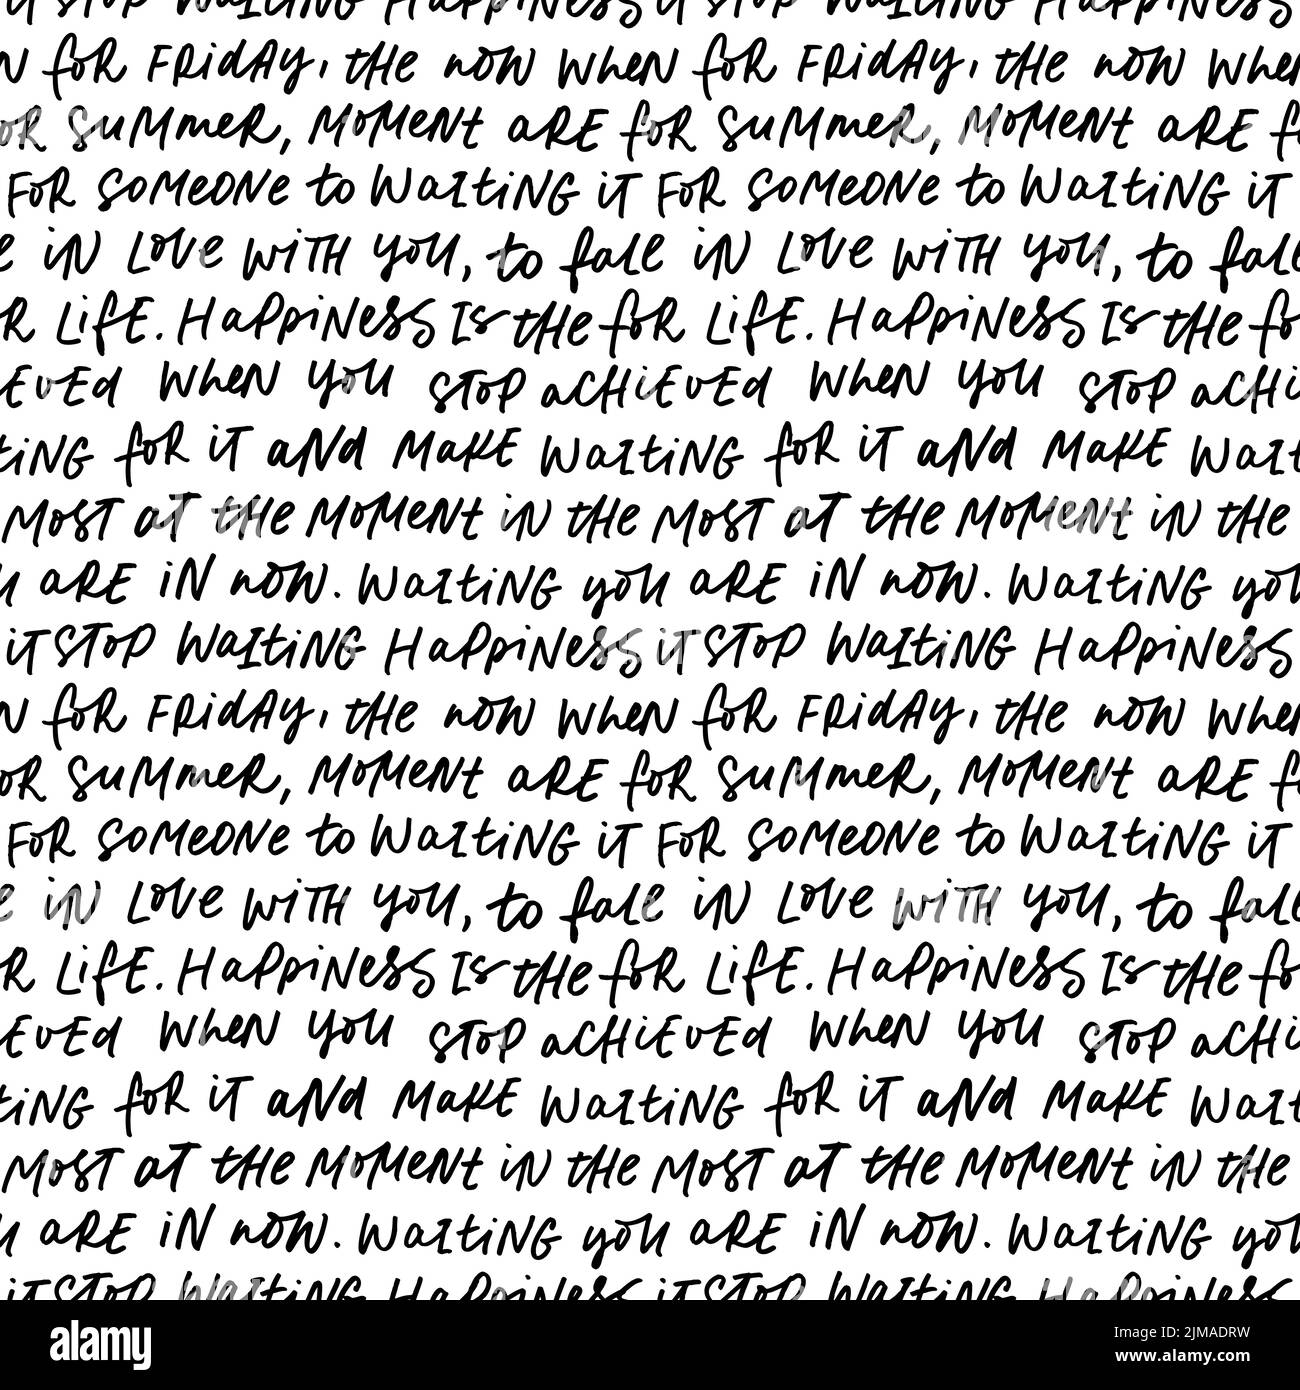 it stop waiting Happiness it stop waiting Happiness
n for Friday, the now when for Friday, the now when
for summer, moment are for summer, moment are f
for someone to waiting it for someone to waiting it
e in love with you, to fall in love with you, to fall
r life. Happiness is the for life. Happiness is the fo
ieved when you stop achieved when you stop achi
ting for it and make waiting for it and make wait
most at the moment in the most at the moment in the
u are in now. waiting you are in now. waiting you
it stop waiting Happiness it stop waiting Happiness
n for Friday, the now when for Friday, the now when
for summer, moment are for summer, moment are f
for someone to waiting it for someone to waiting it
e in love with you, to fall in love with you, to fall
r life. Happiness is the for life. Happiness is the fo
ieved when you stop achieved when you stop achi
ting for it and make waiting for it and make wait
most at the moment in the most at the moment in the
u are in now. waiting you are in now. waiting you
it stop waiting Happiness it stop waiting Happiness
alamy
Image ID: 2JMADRW
www.alamy.com